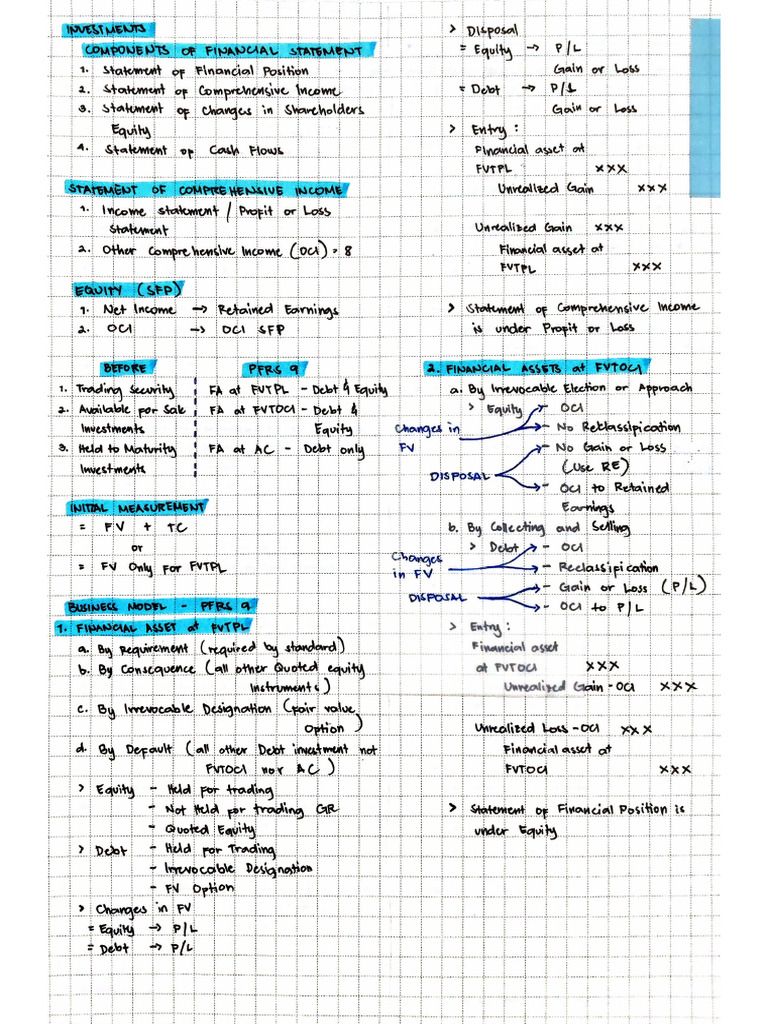 INVESTMENTS
COMPONENTS OF FINANCIAL STATEMENT
1. Statement of Financial Position
2. Statement of Comprehensive Income
3. Statement of Changes in Shareholders
Equity
4. Statement of Cash Flows
STATEMENT OF COMPREHENSIVE INCOME
1. Income statement / Profit or Loss
statement
2. Other Comprehensive Income (OCI) = 8
EQUITY (SFP)
1. Net Income → Retained Earnings
2. OCI → OCI SFP
BEFORE PFRS 9
1. Trading Security FA at FVTPL - Debt & Equity
2. Available for Sale FA at FVTOCI - Debt &
Investments Equity
3. Held to Maturity FA at AC - Debt only
Investments
INITIAL MEASUREMENT
= FV + TC
or
= FV Only for FVTPL
BUSINESS MODEL - PFRS 9
1. FINANCIAL ASSET at FVTPL
a. By Requirement (required by standard)
b. By Consequence (all other Quoted equity
Instruments)
c. By Irrevocable Designation (fair value
Option)
d. By Default (all other Debt investment not
FVTOCI nor AC)
> Equity - Held for trading
- Not Held for trading GR
- Quoted Equity
> Debt - Held for Trading
- Irrevocable Designation
- FV Option
> Changes in FV
= Equity → P/L
= Debt → P/L
> Disposal
= Equity → P/L
Gain or Loss
= Debt → P/L
Gain or Loss
> Entry :
Financial asset at
FVTPL xxx
Unrealized Gain xxx
Unrealized Gain xxx
Financial asset at
FVTPL xxx
> Statement of Comprehensive Income
is under Profit or Loss
2. FINANCIAL ASSETS at FVTOCI
a. By Irrevocable Election or Approach
> Equity - OCI
Changes in - No Reklassification
FV - No Gain or Loss
DISPOSAL (Use RE)
- OCI to Retained
Earnings
b. By Collecting and Selling
> Debt - OCI
Changes - Reclassification
in FV - Gain or Loss (P/L)
DISPOSAL - OCI to P/L
> Entry :
Financial asset
at FVTOCI xxx
Unrealized Gain - OCI xxx
Unrealized Loss - OCI xxx
Financial asset at
FVTOCI xxx
> Statement of Financial Position is
under Equity